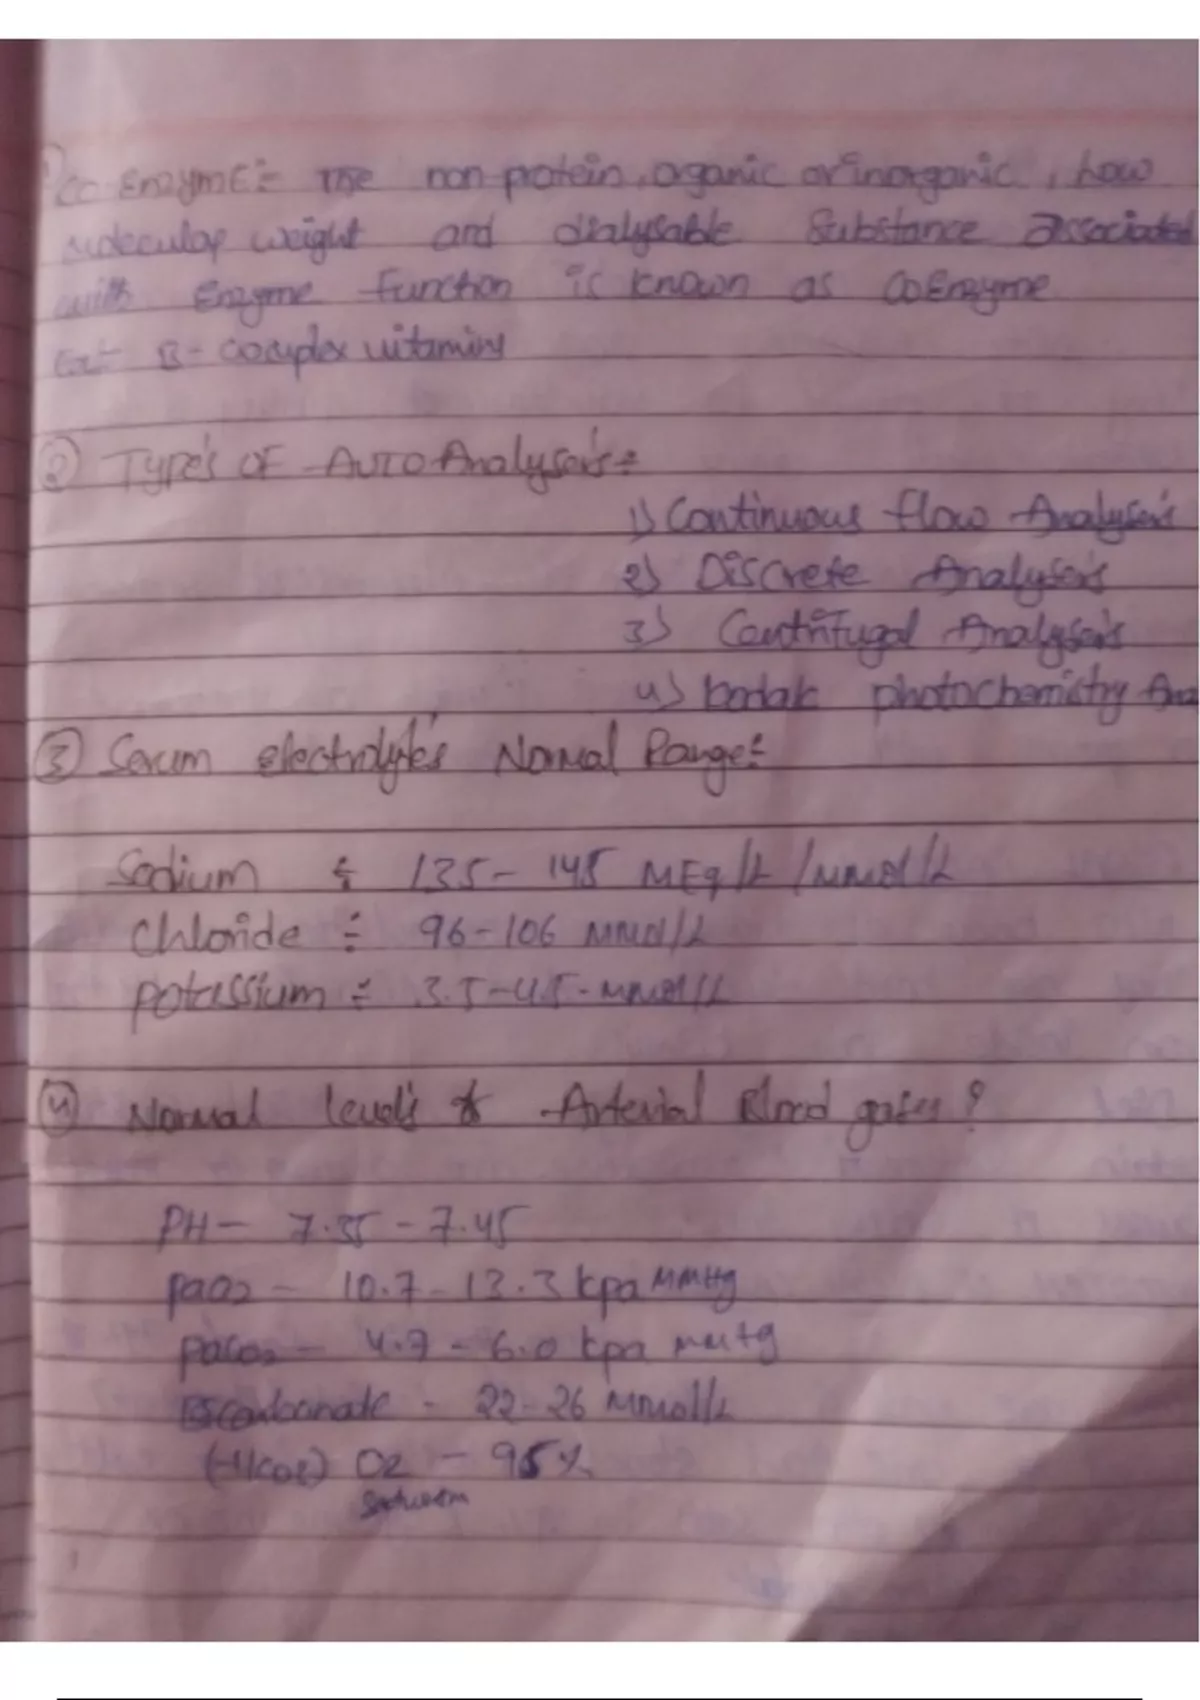 Co Enzyme:- The non-protein, organic or inorganic, low
molecular weight and dialysable substance associated
with Enzyme function is known as CoEnzyme
Ex:- B-complex vitamins
② Type's OF AUTO Analyser's:-
1) Continuous flow Analyser's
2) Discrete Analyser's
3) Centrifugal Analyser's
4) photochemistry Ana
③ Serum electrolyte's Normal Range:-
Sodium :- 135-145 MEq/L /mmol/L
Chloride :- 96-106 mmol/L
potassium :- 3.5-4.5-mmol/L
④ Normal level's of Arterial Blood gases?
PH- 7.35-7.45
paO2- 10.7-13.3 kpa MMHg
paCO2- 4.7-6.0 kpa mmHg
Bicarbonate - 22-26 mmol/L
O2 - 95%